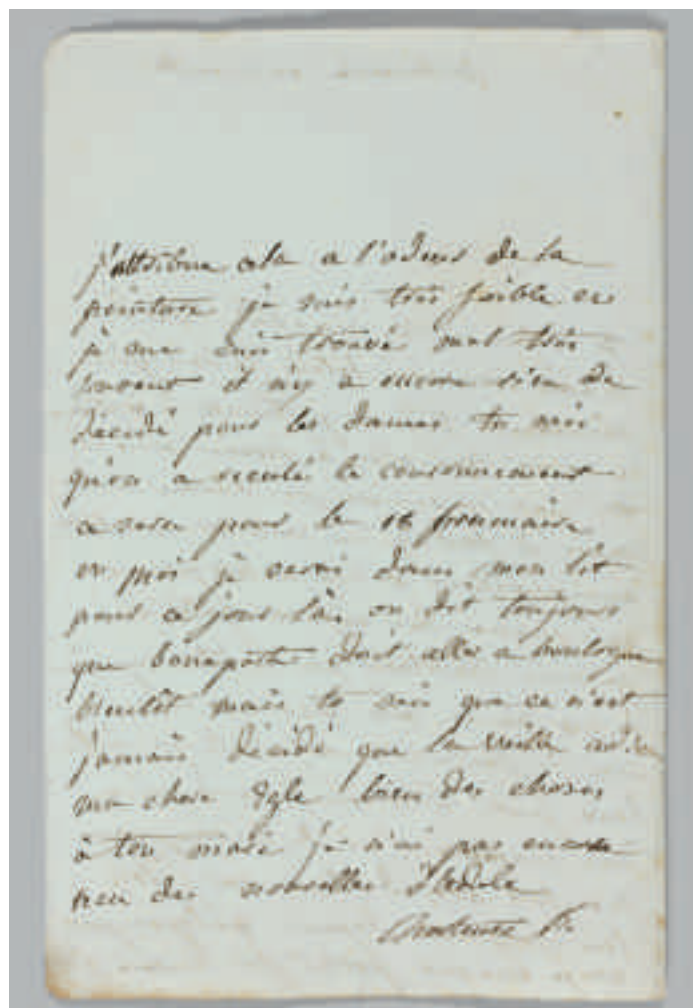 j'attribue cela a l'odeur de la
peinture je suis très foible et
je me suis trouvé mal très
souvent il n'y a encore rien de
décidé pour les dames tu sais
qu'on a reculé le couronnement
ce sera pour le frumaire
et moi je serai dans mon lit
pour ce jour là, on dit toujours
que bonaparte doit aller a boulogne
bientôt mais tu sais que ce n'est
jamais décidé que la veille
ma chere Eglé bien des choses
à ton mari je n'ai pas encore
reçu des nouvelles d'adele
hortense